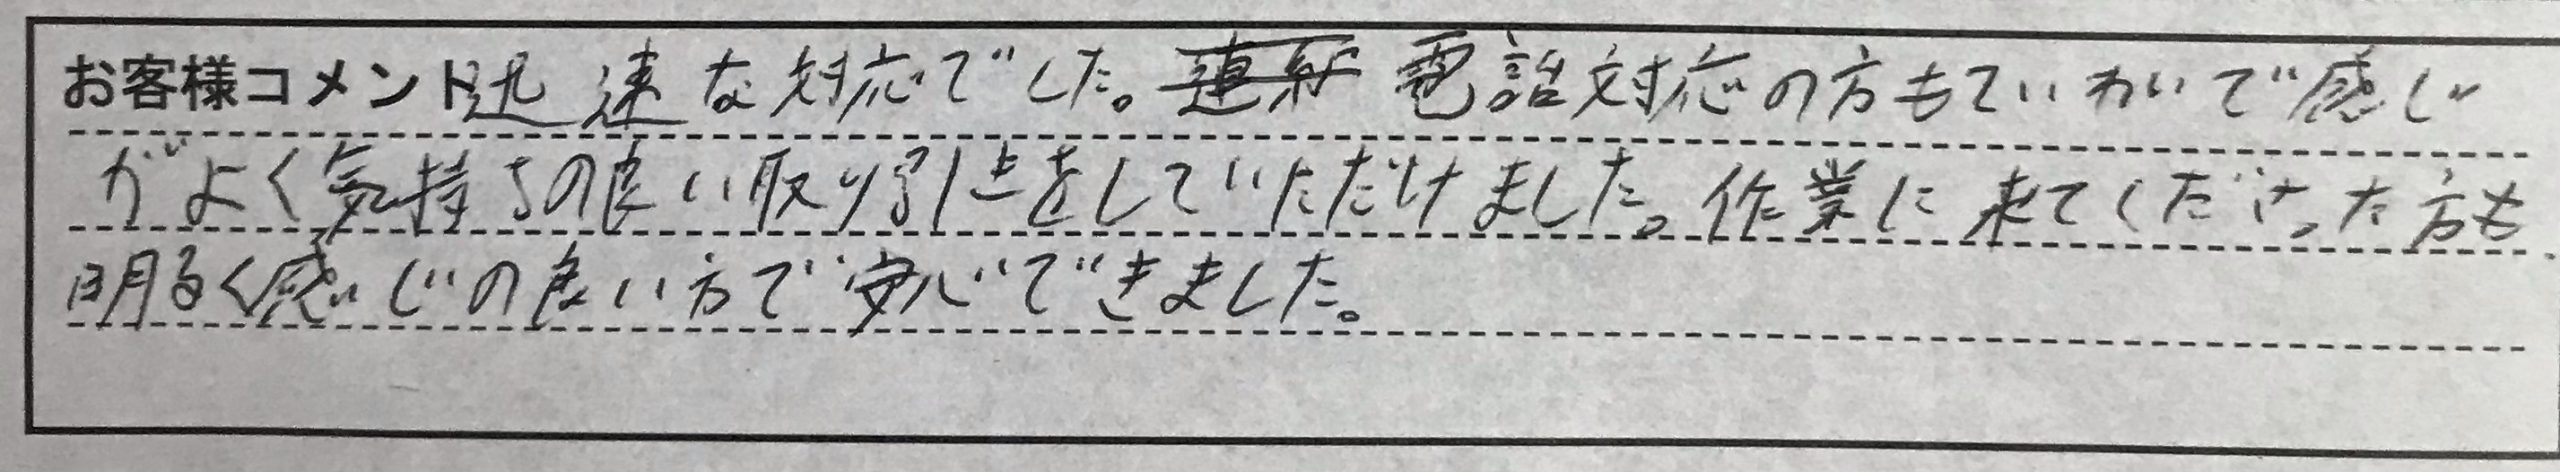 お客様コメント 迅速な対応でした。電話対応の方もていねいで感じ
がよく気持ちの良い取り引きをしていただけました。作業に来てくださった方も
明るく感じの良い方で安心できました。